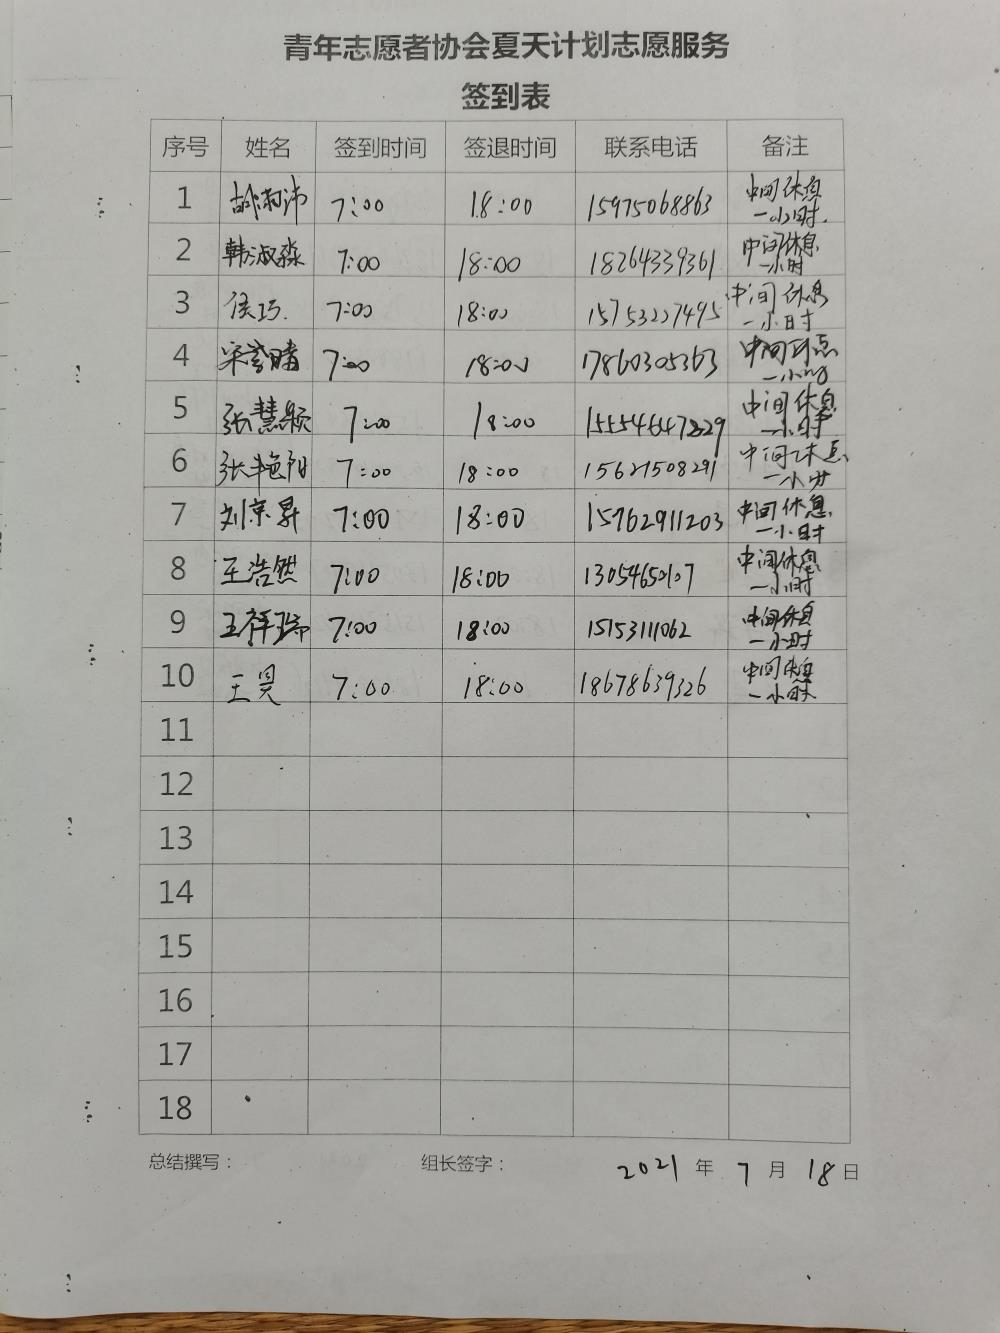 青年志愿者协会夏天计划志愿服务
签到表
序号 姓名 签到时间 签退时间 联系电话 备注
1 7:00 18:00 15975068863 中间休息一小时.
2 韩淑淼 7:00 18:00 18264339361 中间休息一小时
3 侯巧. 7:00 18:00 15753227495 中间休息一小时
4 7:00 18:00 17860305363 中间休息一小时
5 张慧颖 7:00 18:00 中间休息一小时
6 张艳阳 7:00 18:00 15621508291 中间休息一小时
7 刘京昇 7:00 18:00 15762911203 中间休息一小时
8 王浩然 7:00 18:00 中间休息一小时
9 王祥瑞 7:00 18:00 15153111062 中间休息一小时
10 王昊 7:00 18:00 18678639326 中间休息一小时
11
12
13
14
15
16
17
18
总结撰写： 组长签字： 2021 年 7 月 18 日